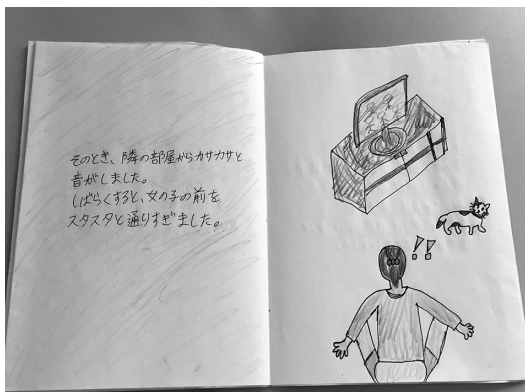 そのとき、隣の部屋からカサカサと
音がしました。
しばらくすると、女の子の前を
スタスタと通りすぎました。
!!